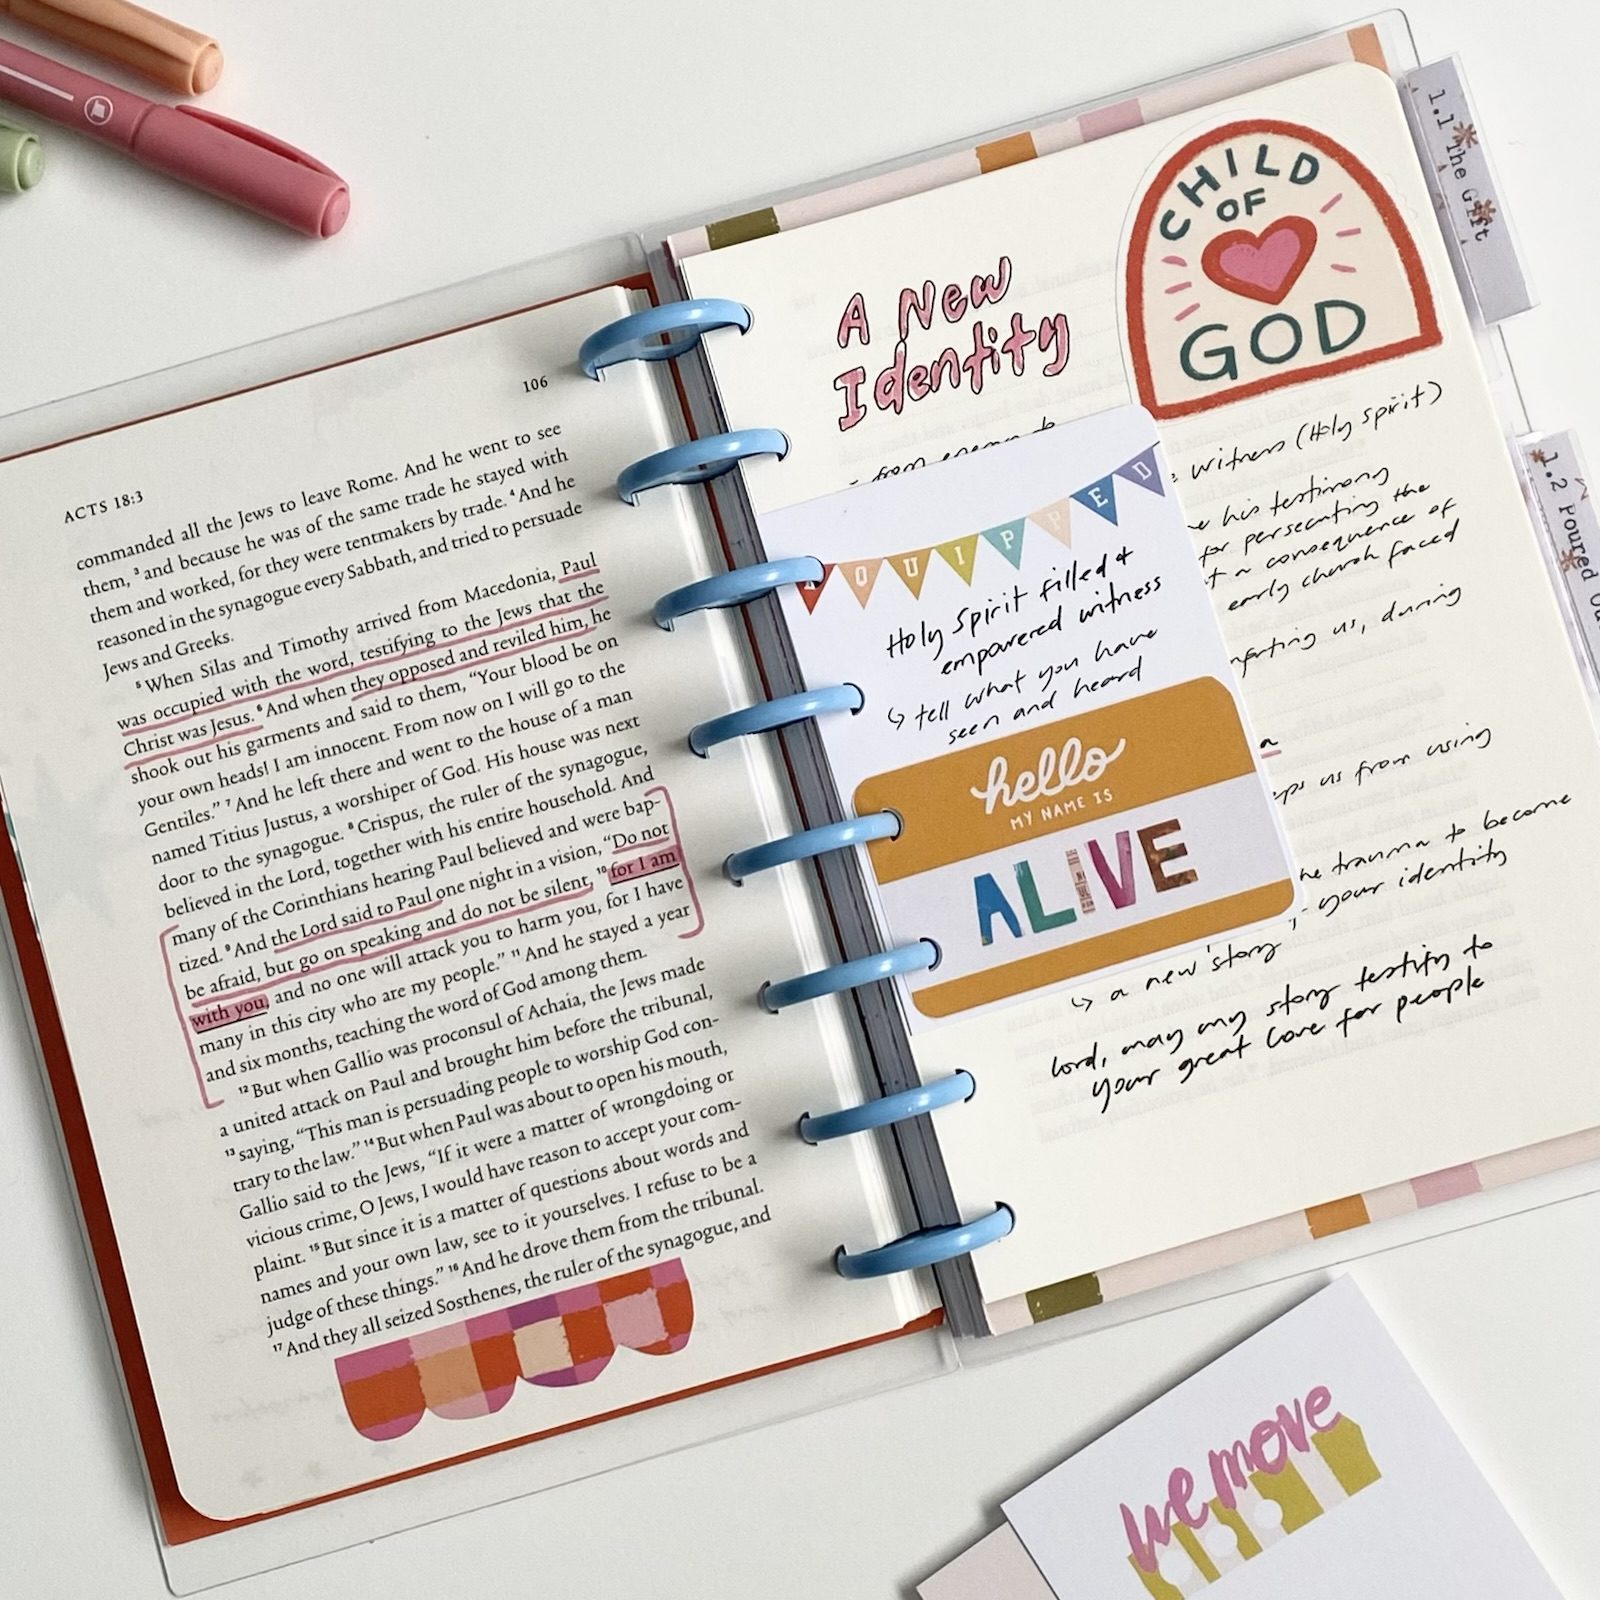 106
ACTS 18:3
commanded all the Jews to leave Rome. And he went to see
them, ³ and because he was of the same trade he stayed with
them and worked, for they were tentmakers by trade. ⁴ And he
reasoned in the synagogue every Sabbath, and tried to persuade
Jews and Greeks.
⁵ When Silas and Timothy arrived from Macedonia, Paul
was occupied with the word, testifying to the Jews that the
Christ was Jesus. ⁶ And when they opposed and reviled him, he
shook out his garments and said to them, “Your blood be on
your own heads! I am innocent. From now on I will go to the
Gentiles.” ⁷ And he left there and went to the house of a man
named Titius Justus, a worshiper of God. His house was next
door to the synagogue. ⁸ Crispus, the ruler of the synagogue,
believed in the Lord, together with his entire household. And
many of the Corinthians hearing Paul believed and were bap-
tized. ⁹ And the Lord said to Paul one night in a vision, “Do not
be afraid, but go on speaking and do not be silent, ¹⁰ for I am
with you, and no one will attack you to harm you, for I have
many in this city who are my people.” ¹¹ And he stayed a year
and six months, teaching the word of God among them.
¹² But when Gallio was proconsul of Achaia, the Jews made
a united attack on Paul and brought him before the tribunal,
¹³ saying, “This man is persuading people to worship God con-
trary to the law.” ¹⁴ But when Paul was about to open his mouth,
Gallio said to the Jews, “If it were a matter of wrongdoing or
vicious crime, O Jews, I would have reason to accept your com-
plaint. ¹⁵ But since it is a matter of questions about words and
names and your own law, see to it yourselves. I refuse to be a
judge of these things.” ¹⁶ And he drove them from the tribunal.
¹⁷ And they all seized Sosthenes, the ruler of the synagogue, and
A New
Identity
CHILD
OF
GOD
from enemy to
witness (Holy Spirit)
his testimony
for persecuting the
a consequence of
early church faced
us, during
QUIPPED
Holy Spirit filled +
empowered witness
↳ tell what you have
seen and heard
hello
MY NAME IS
ALIVE
us from using
trauma to become
your identity
↳ a new 'story'
Lord, may my story testify to
your great love for people
1.1 The Gift
1.2 Poured
we move